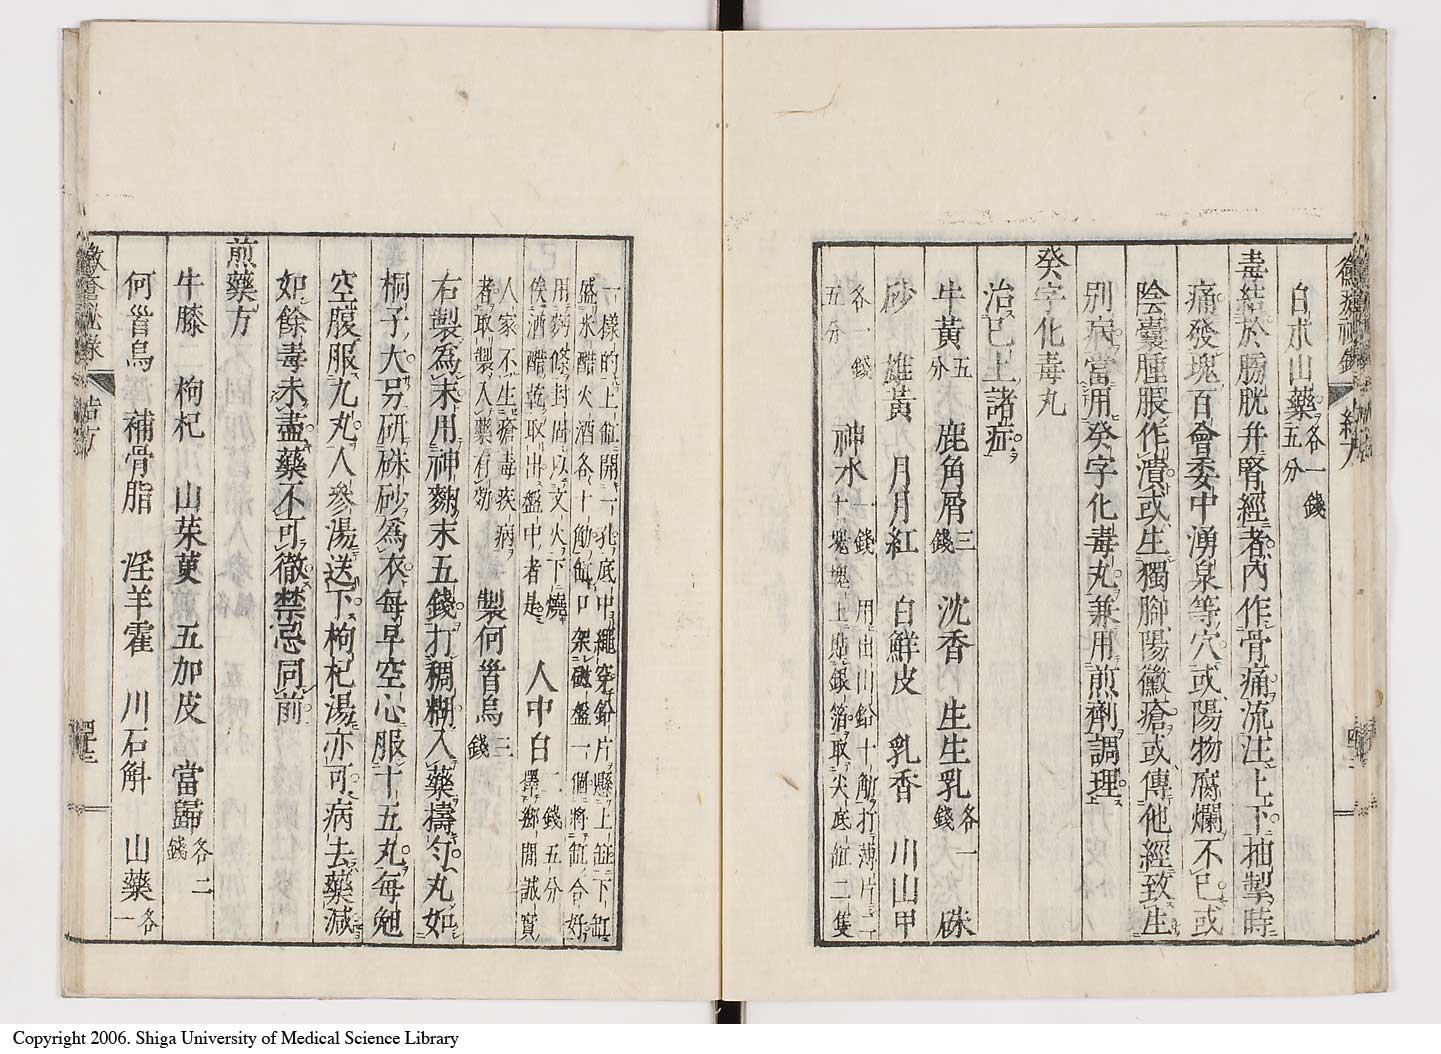 白朮山藥各一錢五分
毒結於膀胱并腎經者內作骨痛流注上下抽掣時
痛發塊百會委中湧泉等穴或陽物腐爛不已或
陰囊腫脹作潰或生獨腳陽黴瘡或傳他經致生
別病當用癸字化毒丸兼用煎劑調理
癸字化毒丸
治已上諸症
牛黃五分 鹿角屑三錢 沈香 生生乳各一錢 硃
砂 雄黃 月月紅一錢 白鮮皮 乳香 川山甲
各一錢五分 神水十塊 用出山鉛十觔打薄片二塊上貼銀箔取尖底缸二隻
一樣的上缸開一孔底中繩穿鉛片懸上缸下缸
盛氷醋火酒各十觔缸口架磁盤一個將缸合好
用麪條封固以文火下燒
俟酒醋乾取出盤中者是 人中白二錢五分擇鄉間誠實
人家不生瘡毒疾病
者取製入藥有効 製何首烏三錢
右製爲末用神麴末五錢打稠糊入藥擣勻丸如
桐子大另研硃砂爲衣每早空心服十五丸每晚
空腹服九丸人參湯送下枸杞湯亦可病去藥減
如餘毒未盡藥不可徹禁忌同前
煎藥方
牛膝 枸杞 山茱萸 五加皮 當歸各二錢
何首烏 補骨脂 淫羊藿 川石斛 山藥各一
黴瘡秘錄